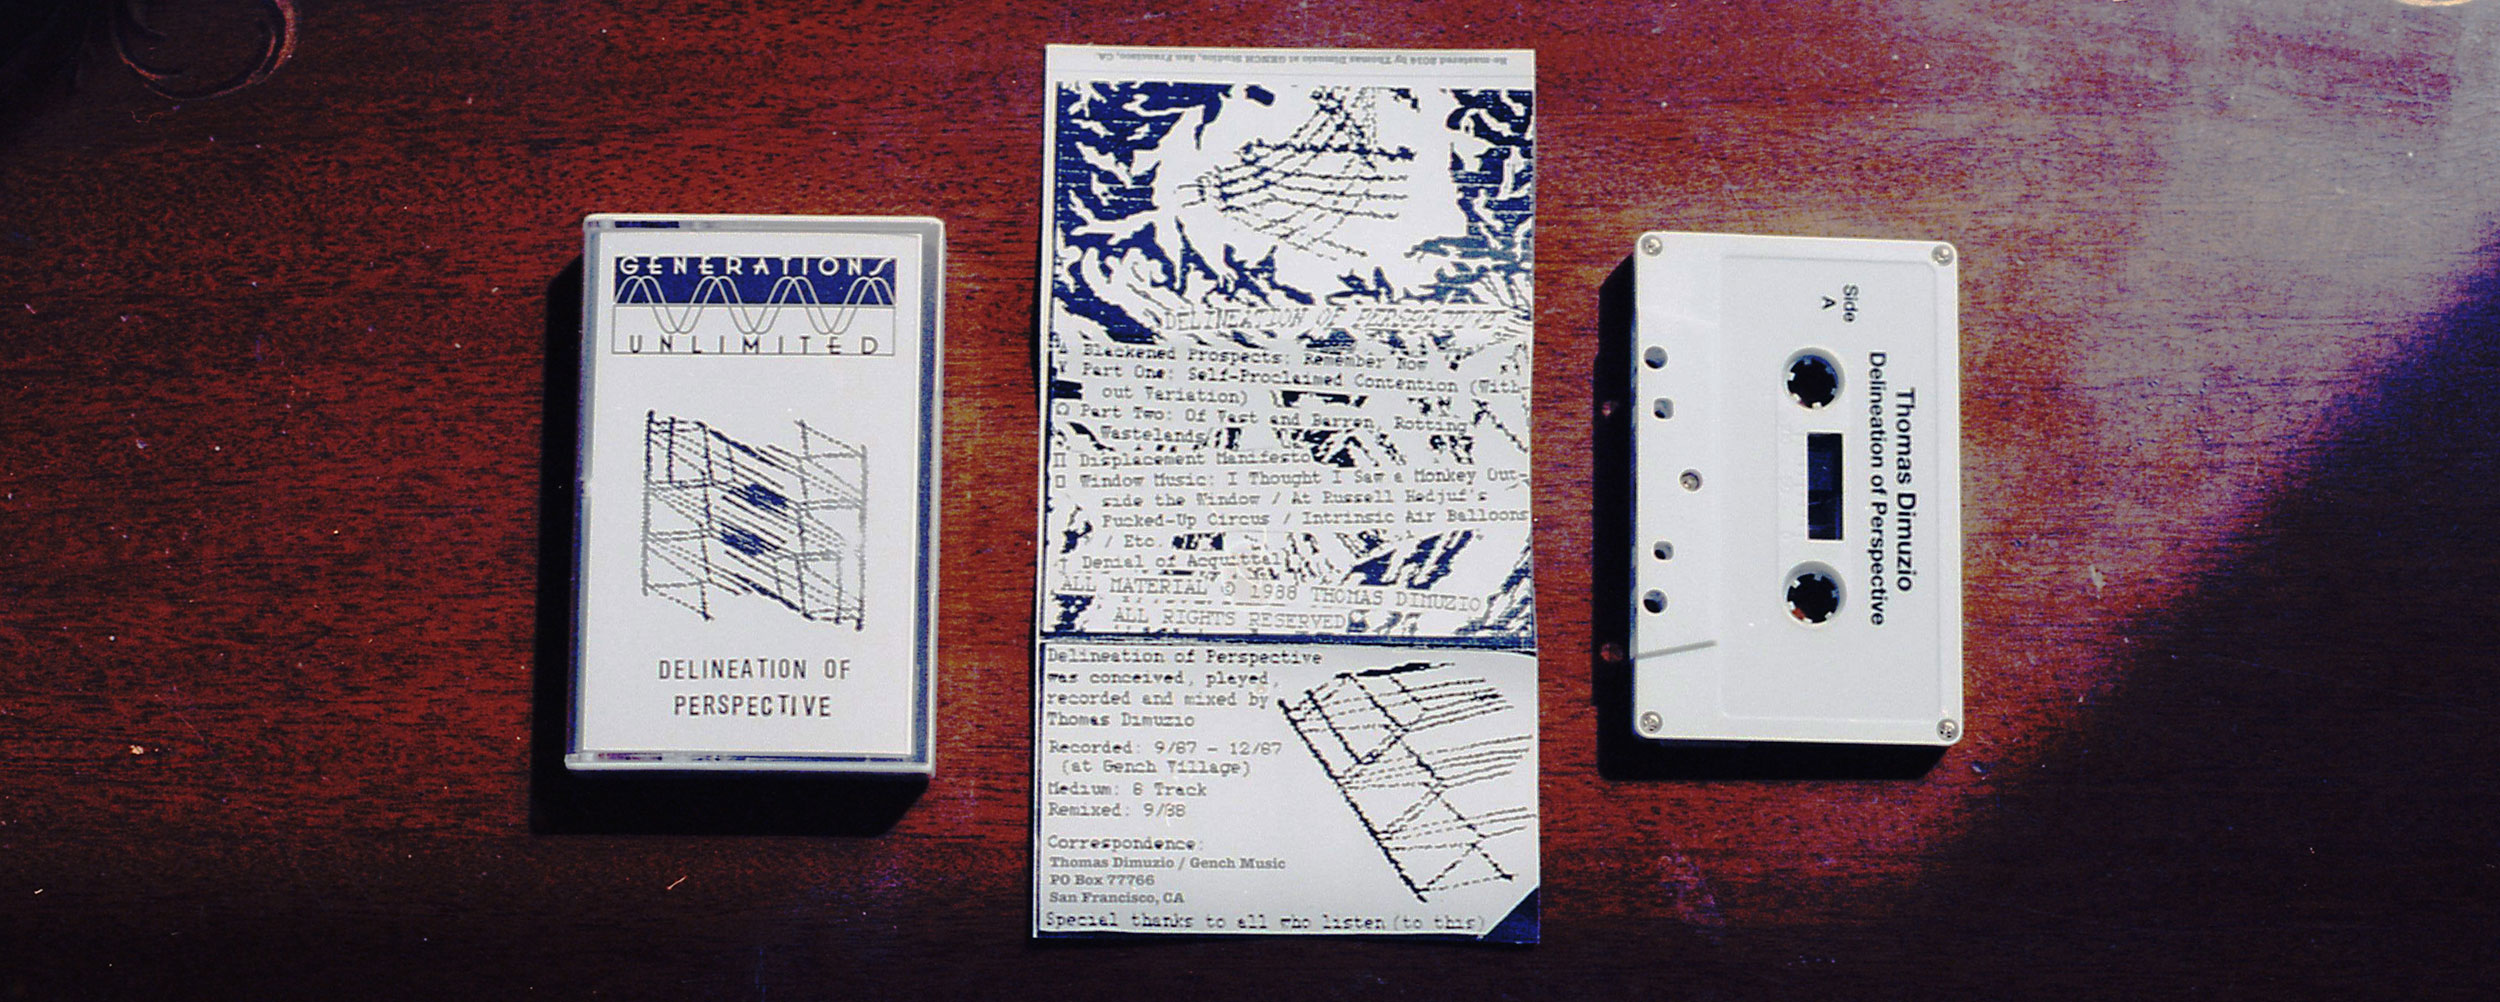 GENERATIONS
UNLIMITED
DELINEATION OF
PERSPECTIVE
Re-mastered 2016 by Thomas Dimuzio at GENCH Studios, San Francisco, CA.
DELINEATION OF PERSPECTIVE
Blackened Prospects: Remember Now
Part One: Self-Proclaimed Contention (With-
out Variation)
Ω Part Two: Of Vast and Barren, Rotting
Wastelands
Π Displacement Manifesto
Window Music: I Thought I Saw a Monkey Out-
side the Window / At Russell Hedjuf's
Fucked-Up Circus / Intrinsic Air Balloons
/ Etc.
† Denial of Acquittal
ALL MATERIAL © 1988 THOMAS DIMUZIO
ALL RIGHTS RESERVED
Delineation of Perspective
was conceived, played,
recorded and mixed by
Thomas Dimuzio
Recorded: 9/87 - 12/87
(at Gench Village)
Medium: 8 Track
Remixed: 9/88
Correspondence:
Thomas Dimuzio / Gench Music
PO Box 77766
San Francisco, CA
Special thanks to all who listen (to this)
Side
A
Thomas Dimuzio
Delineation of Perspective